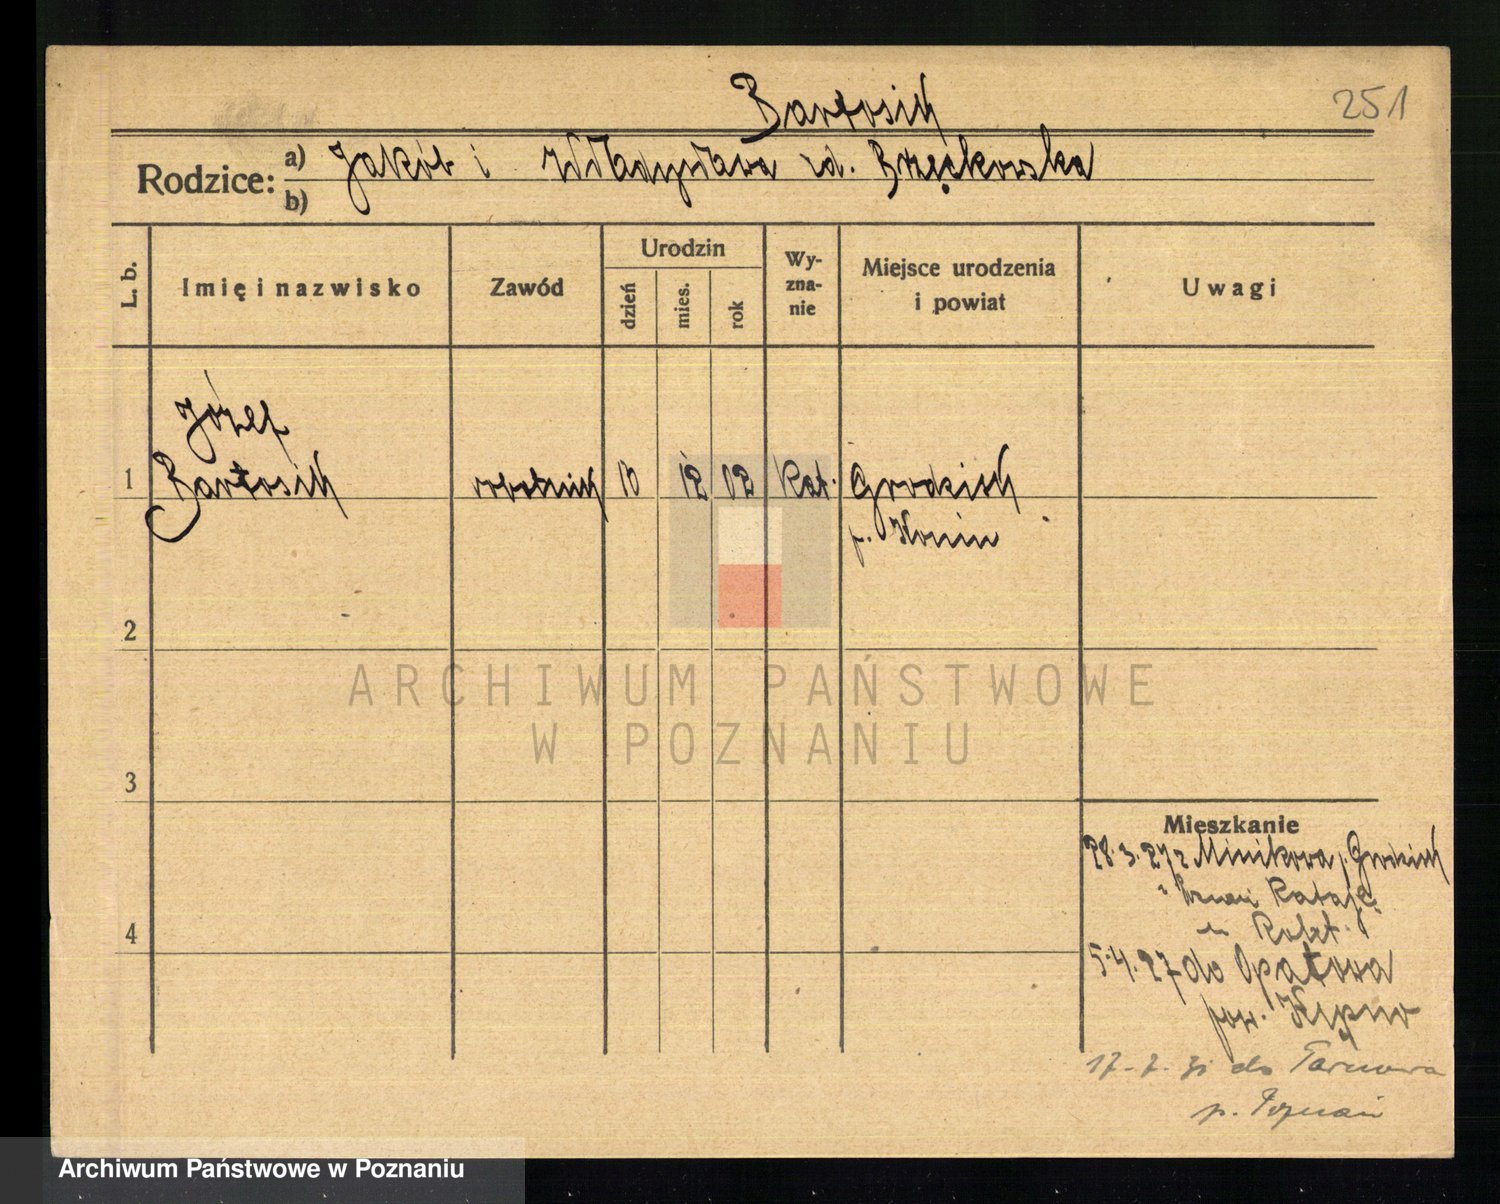 251
Bartosik
Rodzice: a) Jakób i Władysława zd. Brzęćkowska
b)
L. b.
Imię i nazwisko
Zawód
Urodzin
dzień
mies.
rok
Wy-
zna-
nie
Miejsce urodzenia
i powiat
Uwagi
Józef
1 Bartosik robotnik 12 02 Kat. Grodzisk
p. Konin
2
ARCHIWUM PAŃSTWOWE
W POZNANIU
3
Mieszkanie
28.3.27 z Minikowa, Grodzisk
Poznań Rataje
4
5.4.27 do Opatowa
pow. Kępno
17-7-31 do Tarnowa
p. Poznań
Archiwum Państwowe w Poznaniu